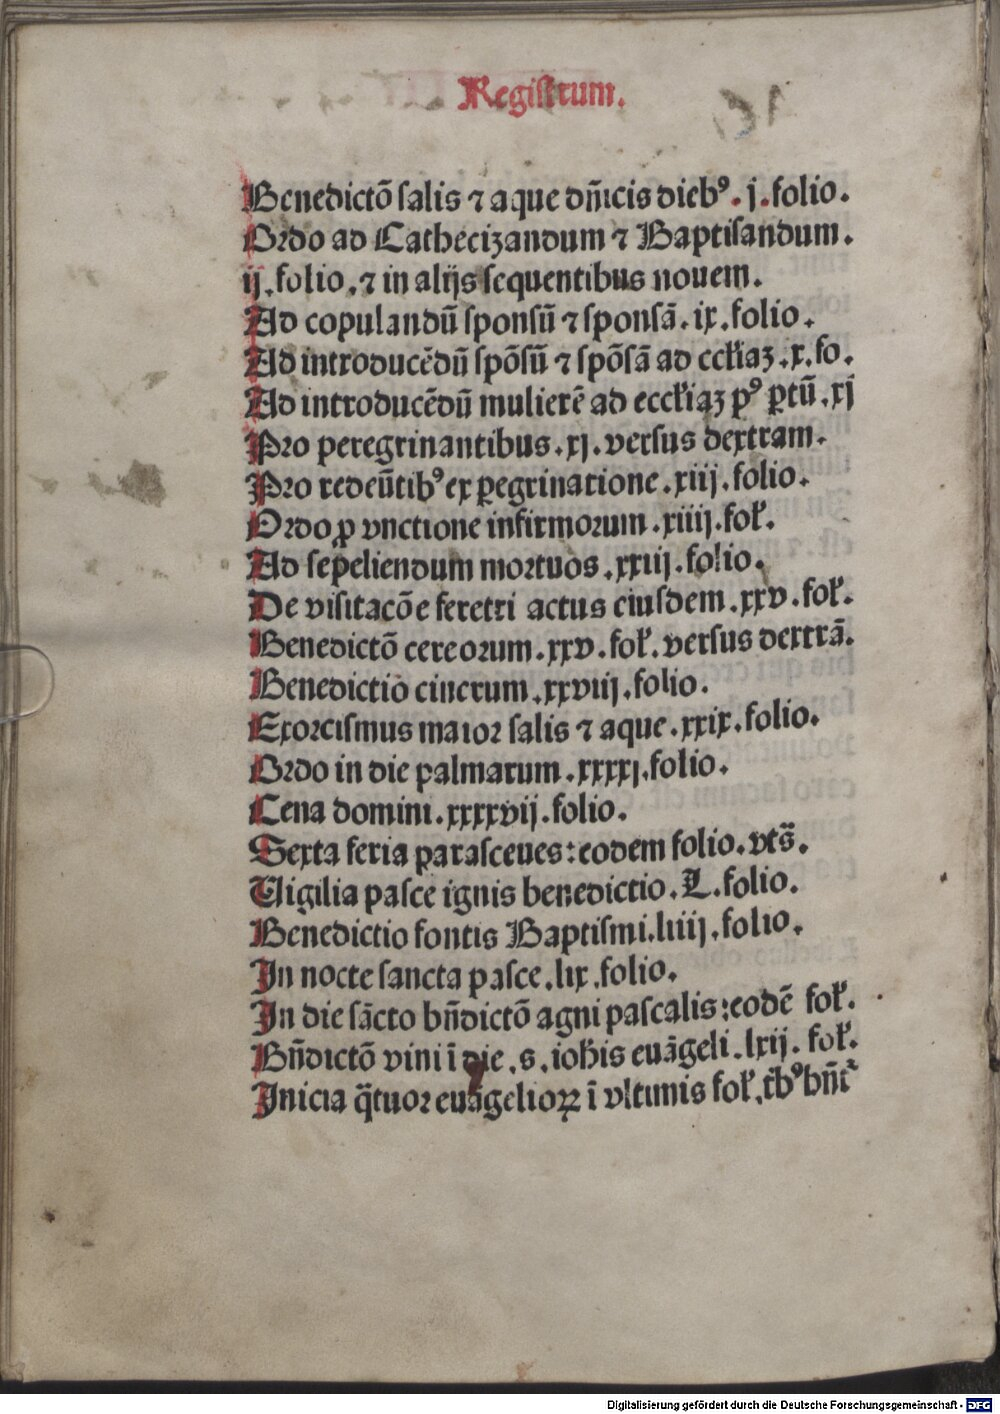 Registrum.
16
Benedictō ſalis ⁊ aque dn̄icis diebꝰ. j. folio.
Ordo ad Cathecizandum ⁊ Baptiſandum.
ij. folio. ⁊ in alijs ſequentibus nouem.
Ad copulandū ſponſū ⁊ ſponſā. ix. folio.
Ad introducēdū ſpōſū ⁊ ſpōſā ad eccłiaꝫ. x. fo.
Ad introducēdū mulierē ad eccłiaꝫ pꝰ ꝑtū. xj
Pro peregrinantibus. xj. verſus dextram.
Pro redeūtibꝰ ex ꝑegrinatione. xiij. folio.
Ordo ꝓ vnctione infirmorum. xiiij. foł.
Ad ſepeliendum mortuos. xxiij. folio.
De viſitacōe feretri actus eiuſdem. xxv. foł.
Benedictō cereorum. xxv. foł. verſus dextrā.
Benedictio cinerum. xxviij. folio.
Exorciſmus maior ſalis ⁊ aque. xxix. folio.
Ordo in die palmarum. xxxxj. folio.
Cena domini. xxxxvij. folio.
Sexta feria paraſceues: eodem folio. vts̄.
Uigilia paſce ignis benedictio. L. folio.
Benedictio fontis Baptiſmi. liiij. folio.
In nocte ſancta paſce. lix. folio.
In die ſācto bn̄dictō agni paſcalis: eodē foł.
Bn̄dictō vini ī die. s. ioh̄is euāgeli. lxij. foł.
Inicia q̄tuor euāgelioꝝ ī vltimis foł. t̄bꝰ bn̄t
Digitalisierung gefördert durch die Deutsche Forschungsgemeinschaft - DFG